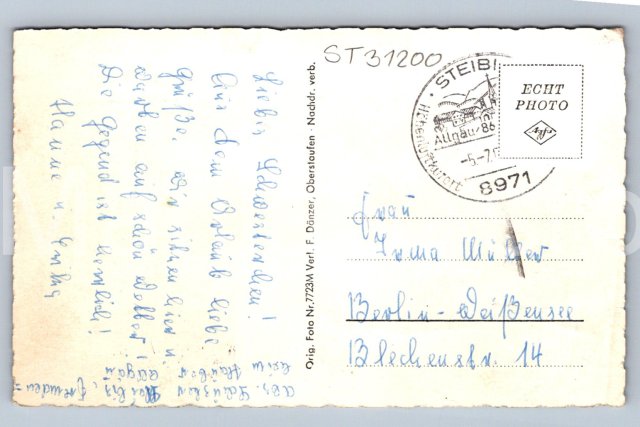 Liebes Schwesterchen!
Aus dem Urlaub liebe
Grüße. Wir sitzen hier u.
warten auf schön Wetter!
Die Gegend ist herrlich!
Hanne u.
Orig. Foto Nr.7723M Verl. F. Dänzer, Oberstaufen · Nachdr. verb.
ST31200
STEIBI
Allgäu/86
-5.-7.
8971
ECHT
PHOTO
Agfa
Frau
Irma Müller
Berlin-Weißensee
Blechenstr. 14